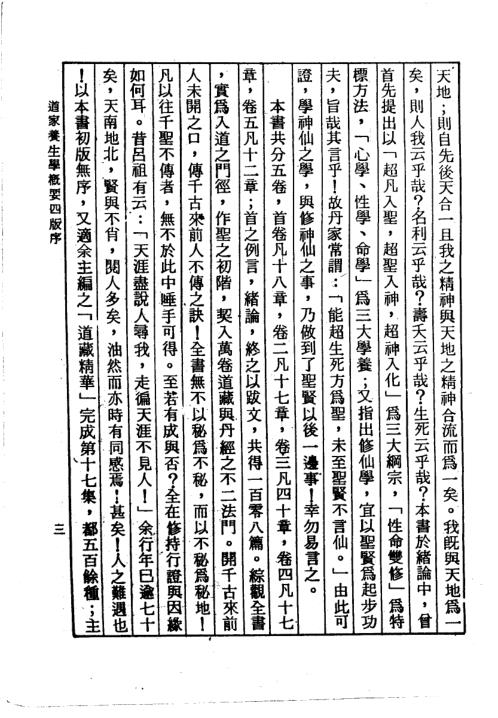 天地；則自先後天合一且我之精神與天地之精神合流而爲一矣。我旣與天地爲一
矣，則人我云乎哉？名利云乎哉？壽夭云乎哉？生死云乎哉？本書於緒論中，曾
首先提出以「超凡入聖，超聖入神，超神入化」爲三大綱宗，「性命雙修」爲特
標方法，「心學、性學、命學」爲三大學養；又指出修仙學，宜以聖賢爲起步功
夫，旨哉其言乎！故丹家常謂：「能超生死方爲聖，未至聖賢不言仙。」由此可
證，學神仙之學，與修神仙之事，乃做到了聖賢以後一邊事！幸勿易言之。
本書共分五卷，首卷凡十八章，卷二凡十七章，卷三凡四十章，卷四凡十七
章，卷五凡十二章；首之例言，緒論，終之以跋文，共得一百零八篇。綜觀全書
，實爲入道之門徑，作聖之初階，契入萬卷道藏與丹經之不二法門。開千古來前
人未開之口，傳千古來前人不傳之訣！全書無不以秘爲不秘，而以不秘爲秘地！
凡以往千聖不傳者，無不於此中唾手可得。至若有成與否？全在修持行證與因緣
如何耳。昔呂祖有云：「天涯盡說人尋我，走徧天涯不見人！」余行年已逾七十
矣，天南地北，賢與不肖，閱人多矣，油然而亦時有同感焉！甚矣！人之難遇也
！以本書初版無序，又適余主編之「道藏精華」完成第十七集，都五百餘種；主
道家養生學概要四版序
三